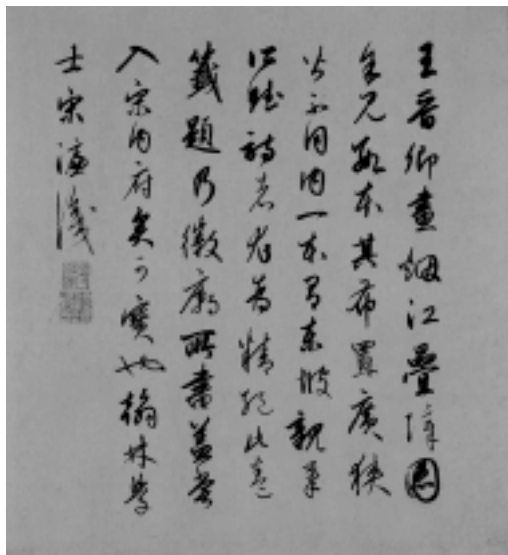 王晉卿畫烟江疊嶂圖
余見數本其布置廣狹
皆不同内一本有東坡親筆
賦詩為精絕此卷
籤題乃徽廟所書蓋嘗
入宋内府矣可寶也翰林學
士宋濂識